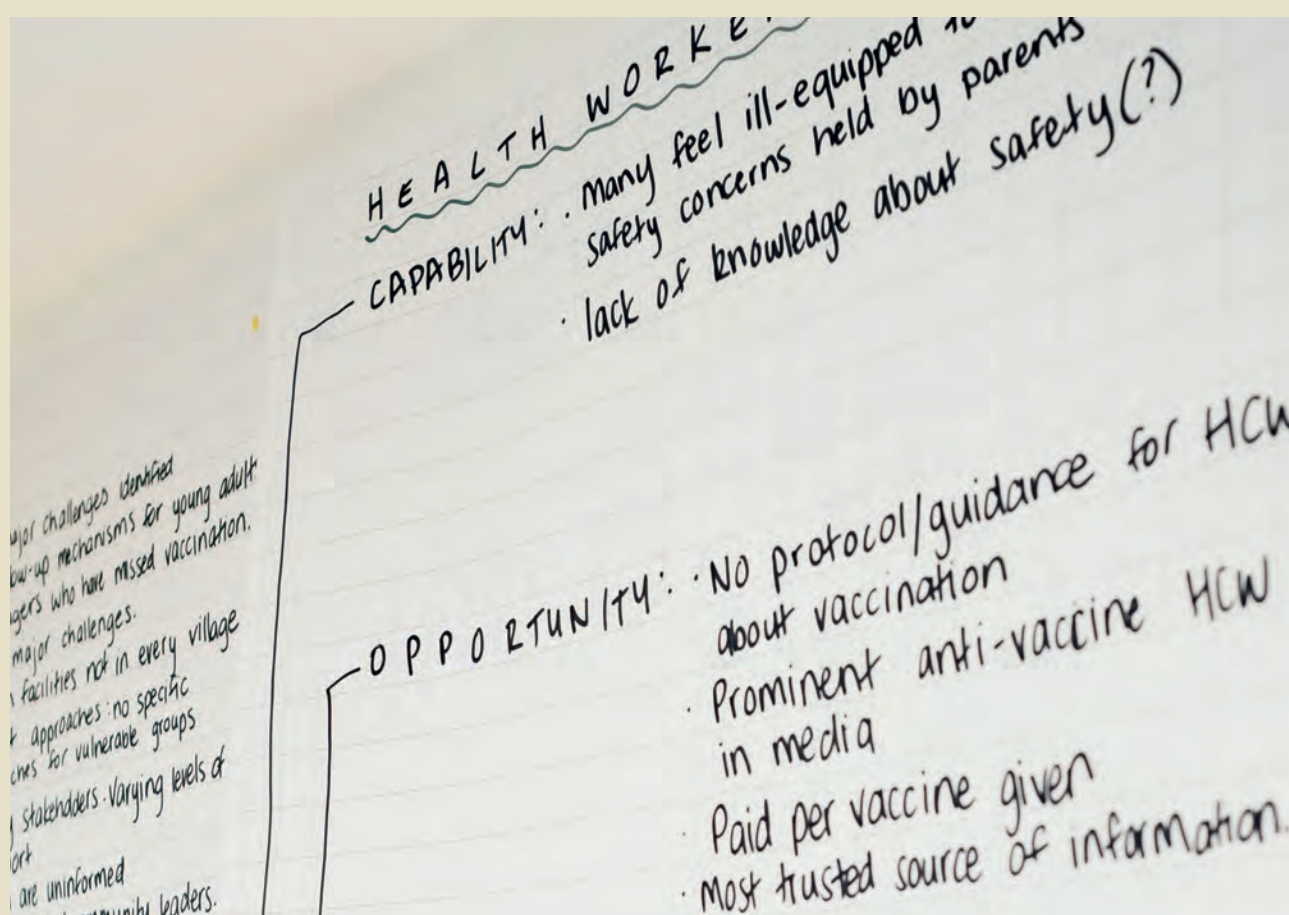 HEALTH WORKE
CAPABILITY: · Many feel ill-equipped to
safety concerns held by parents
· lack of knowledge about safety(?)
OPPORTUNITY: · No protocol/guidance for HCW
about vaccination
· Prominent anti-vaccine HCW
in media
· Paid per vaccine given
· Most trusted source of information.
challenges identified
mechanisms for young adult
who have missed vaccination.
major challenges.
facilities not in every village
approaches: no specific
for vulnerable groups
stakeholders. Varying levels of
are uninformed
leaders.